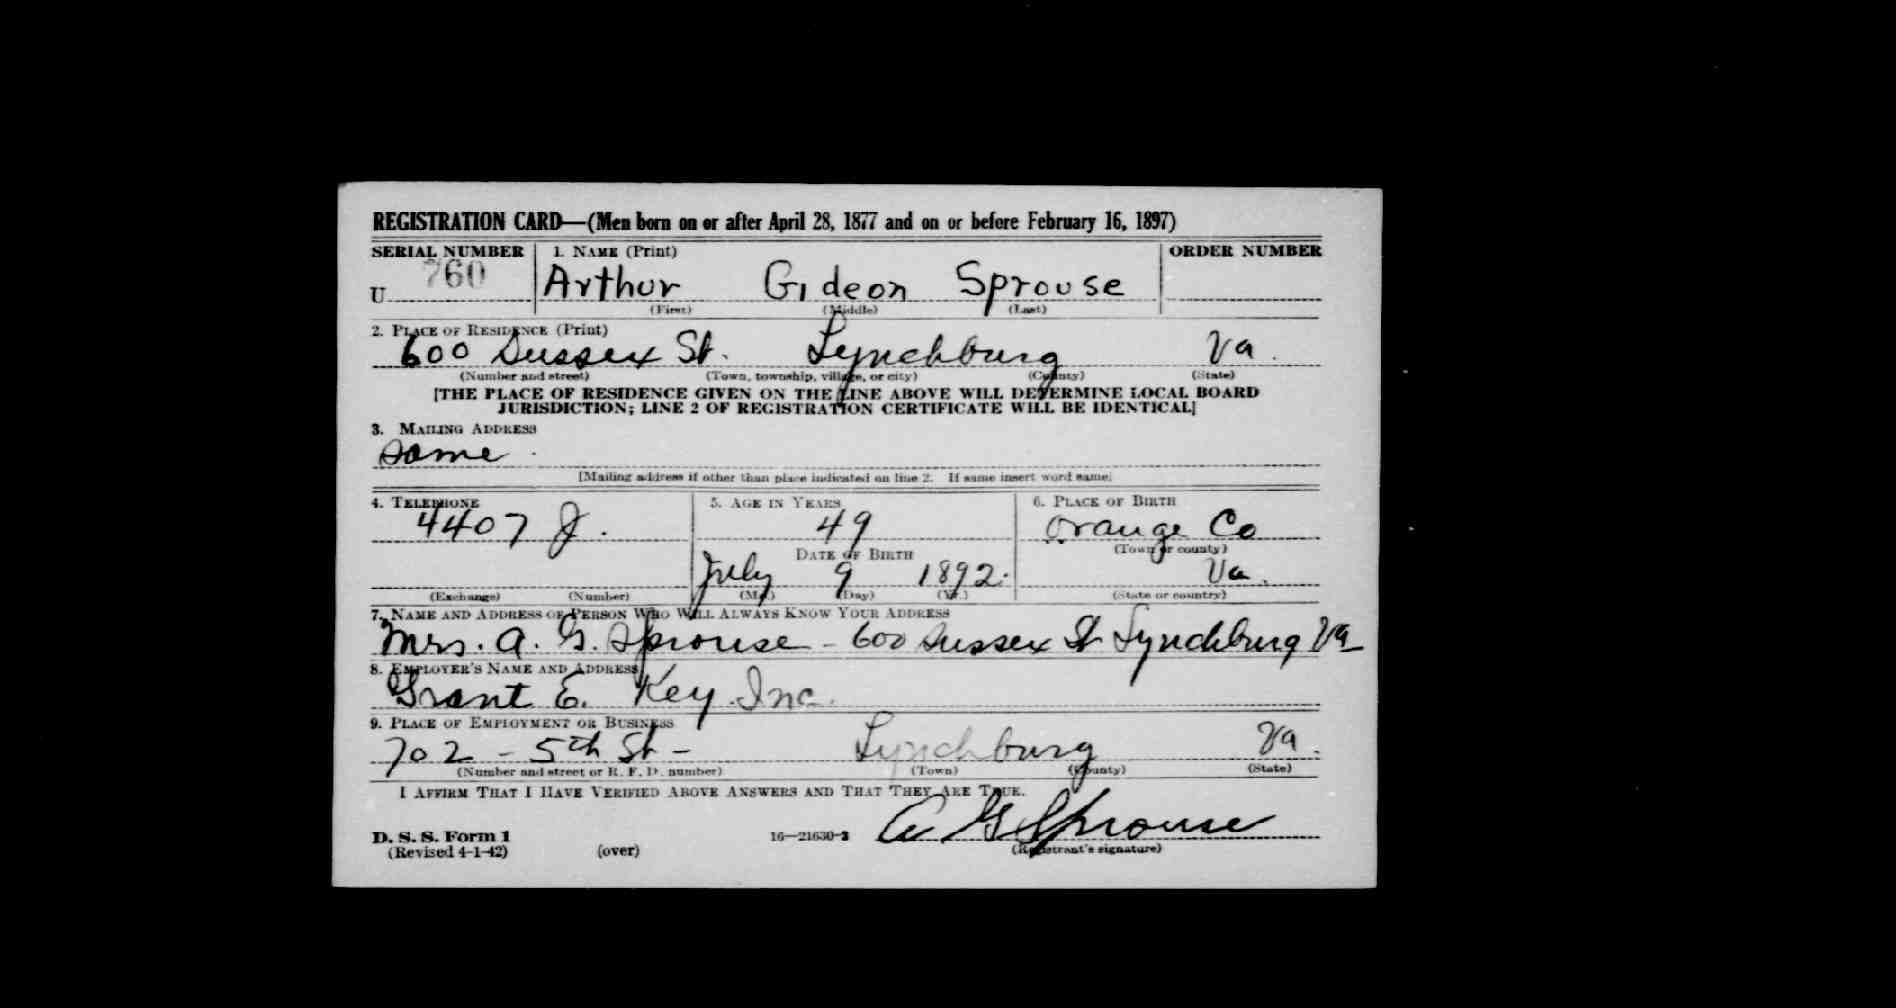 REGISTRATION CARD—(Men born on or after April 28, 1877 and on or before February 16, 1897)
SERIAL NUMBER 1. NAME (Print) ORDER NUMBER
U 760 Arthur Gideon Sprouse
(First) (Middle) (Last)
2. PLACE OF RESIDENCE (Print)
600 Sussex St. Lynchburg Va.
(Number and street) (Town, township, village, or city) (County) (State)
[THE PLACE OF RESIDENCE GIVEN ON THE LINE ABOVE WILL DETERMINE LOCAL BOARD
JURISDICTION; LINE 2 OF REGISTRATION CERTIFICATE WILL BE IDENTICAL]
3. MAILING ADDRESS
Same.
[Mailing address if other than place indicated on line 2. If same insert word same]
4. TELEPHONE 5. AGE IN YEARS 6. PLACE OF BIRTH
4407 J. 49 Orange Co
DATE OF BIRTH (Town or county)
July 9 1892. Va.
(Exchange) (Number) (Mo.) (Day) (Yr.) (State or country)
7. NAME AND ADDRESS OF PERSON WHO WILL ALWAYS KNOW YOUR ADDRESS
Mrs. A. G. Sprouse - 600 Sussex St Lynchburg Va
8. EMPLOYER'S NAME AND ADDRESS
Grant E. Key Inc.
9. PLACE OF EMPLOYMENT OR BUSINESS
702 - 5th St - Lynchburg Va.
(Number and street or R. F. D. number) (Town) (County) (State)
I AFFIRM THAT I HAVE VERIFIED ABOVE ANSWERS AND THAT THEY ARE TRUE.
D. S. S. Form 1 16—21630-2 A G Sprouse
(Revised 4-1-42) (over) (Registrant's signature)